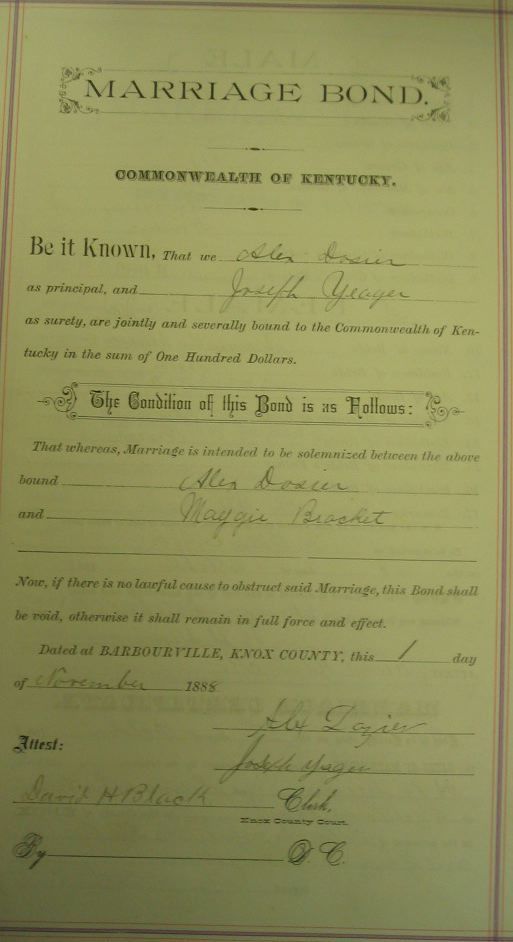 MARRIAGE BOND.
COMMONWEALTH OF KENTUCKY.
Be it Known, That we Alex Dosier
as principal, and Joseph Yeager
as surety, are jointly and severally bound to the Commonwealth of Ken-
tucky in the sum of One Hundred Dollars.
The Condition of this Bond is as Follows:
That whereas, Marriage is intended to be solemnized between the above
bound Alex Dosier
and Maggie Bracket
Now, if there is no lawful cause to obstruct said Marriage, this Bond shall
be void, otherwise it shall remain in full force and effect.
Dated at BARBOURVILLE, KNOX COUNTY, this 1 day
of November 1888
Alx Dozier
Attest:
Joseph Yager
David H Black Clerk,
Knox County Court.
By D. C.